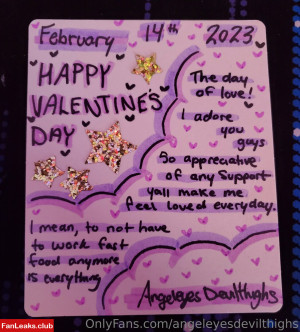 February 14th 2023
HAPPY
VALENTINE'S
DAY
The day
of love!
I adore
you
guys
So appreciative
of any support
yall make me
feel loved everyday.
I mean, to not have
to work fast
food anymore
is everything
Angeleyes Devilthighs
FanLeaks.club
OnlyFans.com/angeleyesdevilthighs